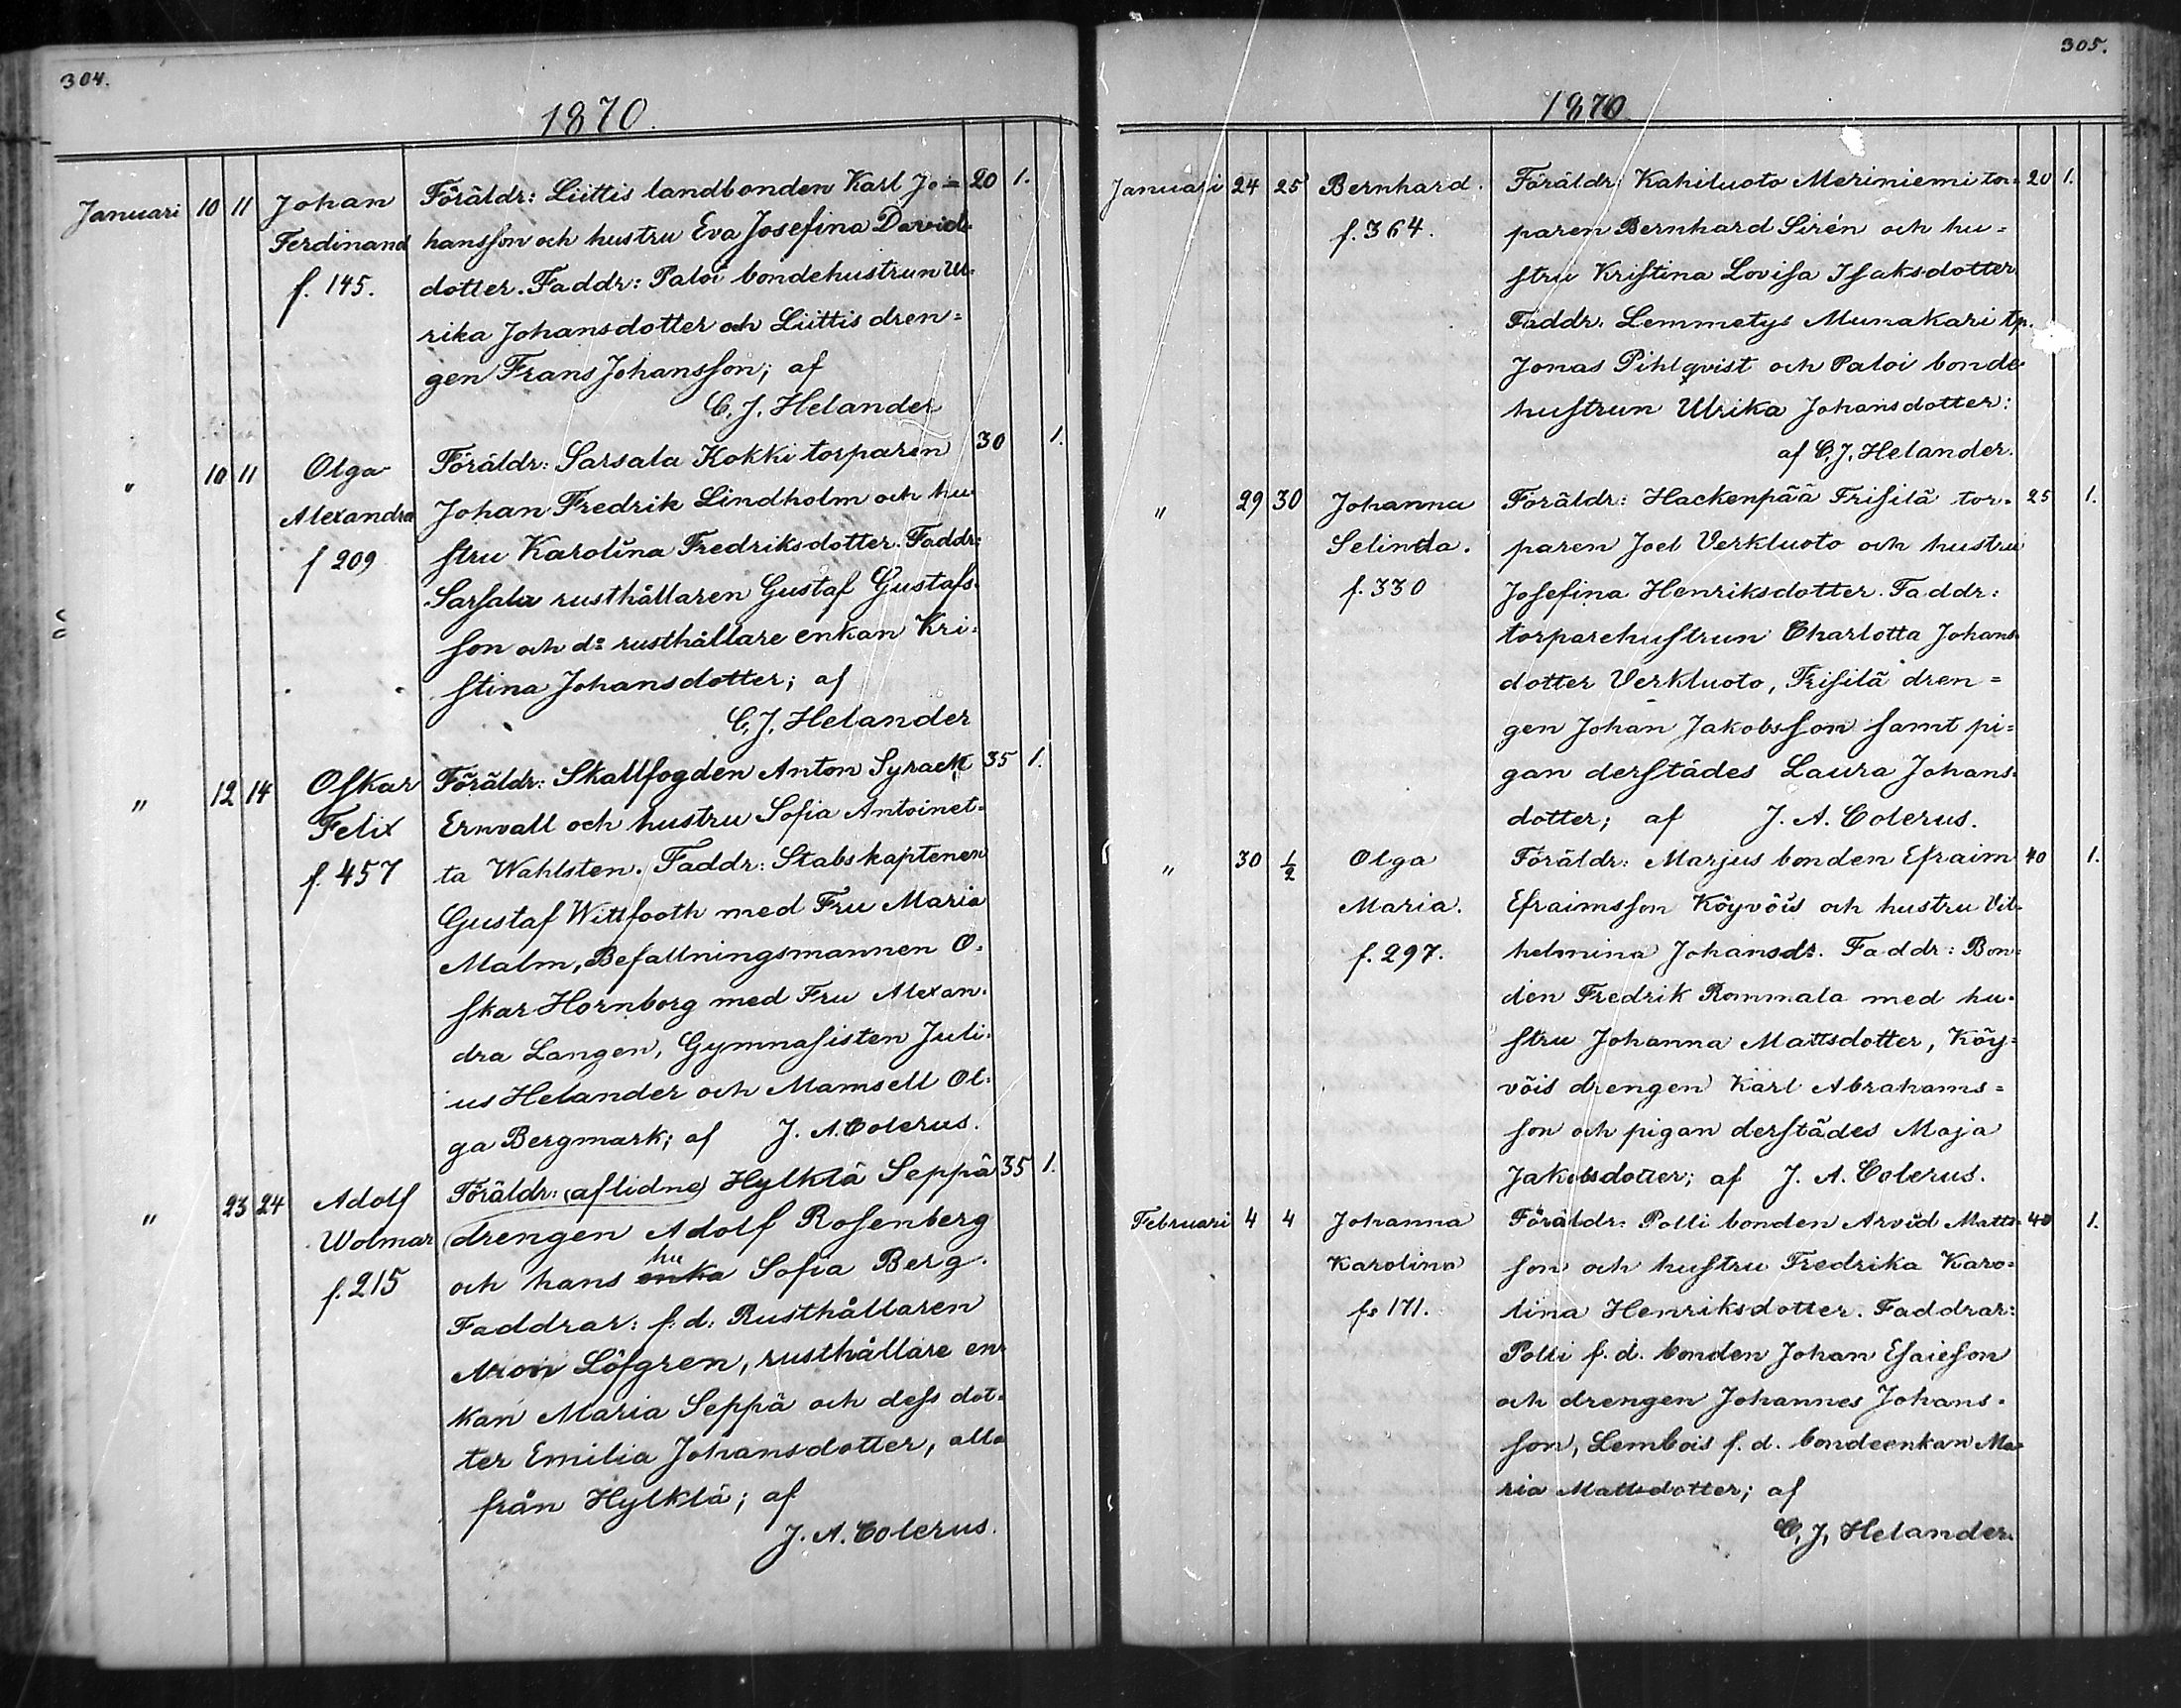 304.
1870.
Januari 10 11 Johan Föräldr: Liittis landbonden Karl Jo= 20 1.
Ferdinand hansson och hustru Eva Josefina Davids
f. 145. dotter. Faddr: Paloi bondehustrun Ul-
rika Johansdotter och Liittis dren=
gen Frans Johansson; af
C. J. Helander
" 10 11 Olga Föräldr: Sarsala Kokki torparen 30 1.
Alexandra Johan Fredrik Lindholm och hu-
f 209 stru Karolina Fredriksdotter. Faddr:
Sarsala rusthållaren Gustaf Gustafs-
son och do rusthållare enkan Kri-
stina Johansdotter; af
C. J. Helander
" 12 14 Oskar Föräldr: Skallfogden Anton Syrack 35 1.
Felix Ernvall och hustru Sofia Antoinet-
f. 457 ta Wahlsten. Faddr: Stabskaptenen
Gustaf Wittfooth med Fru Maria
Malm, Befallningsmannen O-
skar Hornborg med Fru Alexan-
dra Langen, Gymnasisten Juli-
us Helander och Mamsell Ol-
ga Bergmark; af J. A. Colerus.
" 23 24 Adolf Föräldr: (aflidne) Hylklä Seppä 35 1.
Wolmar drengen Adolf Rosenberg
f. 215 och hans enka hu Sofia Berg.
Faddrar: f. d. Rusthållaren
Aron Löfgren, rusthållare en-
kan Maria Seppä och dess dot-
ter Emilia Johansdotter, alla
från Hylklä; af
J. A. Colerus.
305.
1870
Januari 24 25 Bernhard. Föräldr: Kahiluoto Meriniemi tor- 20 1.
f. 364. paren Bernhard Sirén och hu=
stru Kristina Lovisa Isaksdotter
Faddr. Lemmetys Munakari tp.
Jonas Pihlqvist och Paloi bonde-
hustrun Ulrika Johansdotter:
af C. J. Helander.
" 29 30 Johanna Föräldr: Hackenpää Frisilä tor- 25 1.
Selinda. paren Joel Verkluoto och hustru
f. 330 Josefina Henriksdotter. Faddr:
torparehustrun Charlotta Johans-
dotter Verkluoto, Frisilä dren=
gen Johan Jakobsson samt pi=
gan derstädes Laura Johans-
dotter; af J. A. Colerus.
" 30 1/2 Olga Föräldr: Marjus bonden Efraim 40 1.
Maria. Efraimsson Köyvöis och hustru Vil-
f. 297. helmina Johansdr. Faddr: Bon-
den Fredrik Rommala med hu-
stru Johanna Mattsdotter, Köy=
vöis drengen Karl Abrahams=
son och pigan derstädes Maja
Jakobsdotter; af J. A. Colerus.
Februari 4 4 Johanna Föräldr: Polli bonden Arvid Matts- 40 1.
Karolina son och hustru Fredrika Karo-
f. 171. lina Henriksdotter. Faddrar:
Polli f. d. bonden Johan Esaieson
och drengen Johannes Johans-
son, Lembois f. d. bondeenkan Ma-
ria Mattsdotter; af
C. J. Helander.